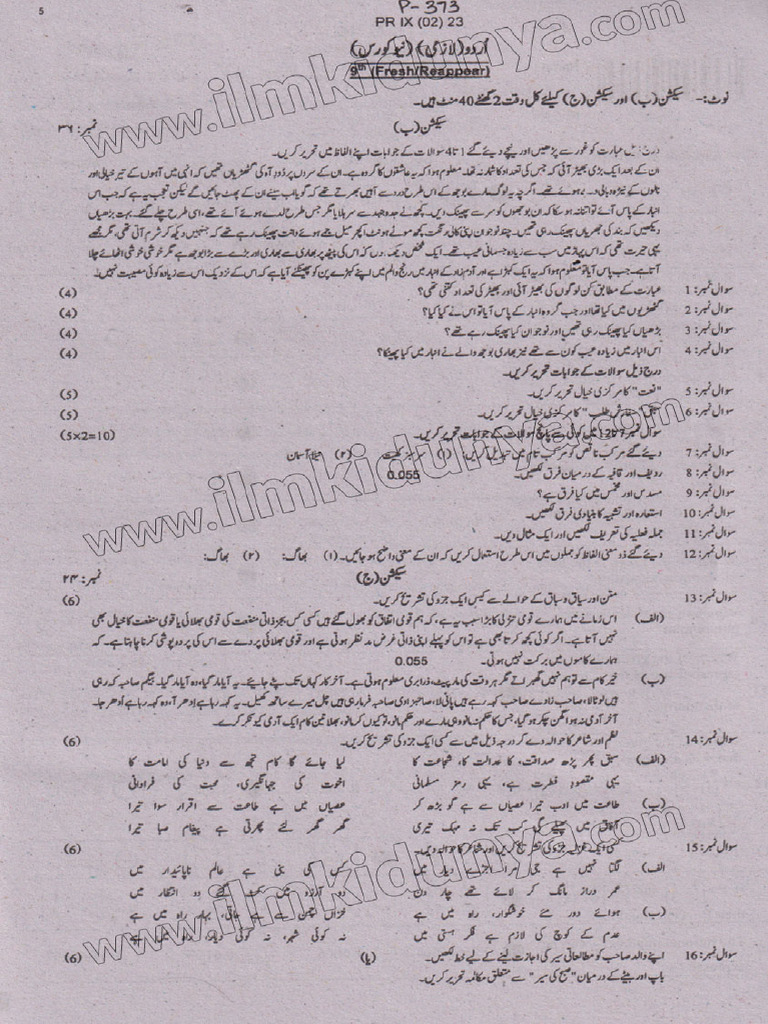 5
P-373
PR IX (02) 23
اُردو (لازمی) (نیو کورس)
9th (Fresh/Reappear)
نوٹ:- سیکشن (ب) اور سیکشن (ج) کیلئے کل وقت 2 گھنٹے 40 منٹ ہیں۔
سیکشن (ب) نمبر: ۳۶
درج ذیل عبارت کو غور سے پڑھیں اور نیچے دیئے گئے 1 تا 4 سوالات کے جوابات اپنے الفاظ میں تحریر کریں۔
ان کے بعد ایک بڑی بھیڑ آئی کہ جس کی تعداد کا شمار نہ تھا۔ معلوم ہوا کہ یہ عاشقوں کا گروہ ہے۔ ان کے سروں پر دُودِ آہ کی گٹھڑیاں تھیں کہ انہی میں آہوں کے تیر خیالی اور
نالوں کے نیزہ وہائی دبے ہوئے تھے۔ اگرچہ یہ لوگ مارے بوجھ کے اس طرح درد سے آہیں بھرتے تھے کہ گویا اب سینے ان کے پھٹ جائیں گے لیکن تعجب یہ ہے کہ جب اس
انبار کے پاس آئے تو اتنا نہ ہو سکا کہ ان بوجھوں کو سر سے پھینک دیں۔ کچھ نے جدوجہد سے سر ہلایا مگر جس طرح لدے ہوئے آئے تھے، اسی طرح چلے گئے۔ بہت بڑھیاں
دیکھیں کہ بدن کی جھریاں پھینک رہی تھیں۔ چند نوجوان اپنی کالی رنگت کچھ موٹے ہونٹ اکثر میل جمے ہوئے دانت پھینک رہے تھے کہ جنہیں دیکھ کر شرم آتی تھی، مگر مجھے
یہی حیرت تھی کہ اس پہاڑ میں سب سے زیادہ جسمانی عیب تھے۔ ایک شخص دیکھتا ہوں کہ اس کی پیٹھ پر بھاری سے بھاری اور بڑے سے بڑا بوجھ ہے مگر خوشی خوشی اٹھائے چلا
آتا ہے۔ جب پاس آیا تو معلوم ہوا کہ یہ ایک کبڑا ہے اور آدم زاد کے انبار میں رنج و الم میں اپنے کبڑے پن کو پھینکنے آیا ہے کہ اس کے نزدیک اس سے زیادہ کوئی مصیبت نہیں۔
سوال نمبر: 1 عبارت کے مطابق کن لوگوں کی بھیڑ آئی اور بھیڑ کی تعداد کتنی تھی؟ (4)
سوال نمبر: 2 گٹھڑیوں میں کیا تھا اور جب گروہ انبار کے پاس آیا تو اس نے کیا کیا؟ (4)
سوال نمبر: 3 بڑھیاں کیا پھینک رہی تھیں اور نوجوان کیا پھینک رہے تھے؟ (4)
سوال نمبر: 4 اس انبار میں زیادہ عیب کون سے تھے نیز بھاری بوجھ والے نے انبار میں کیا پھینکا؟ (4)
درج ذیل سوالات کے جوابات تحریر کریں۔
سوال نمبر: 5 "نعت" کا مرکزی خیال تحریر کریں۔ (5)
سوال نمبر: 6 طلب" کا مرکزی خیال تحریر کریں۔ (5)
سوال نمبر 7 تا 12 میں سے پانچ سوالات کے جوابات تحریر کریں۔ (5×2=10)
سوال نمبر: 7 دیئے گئے مرکب ناقص کو مرکب تام میں تبدیل کریں۔ (۱) سرسبز کھیت (۲) نیلا آسمان
سوال نمبر: 8 ردیف اور قافیہ کے درمیان فرق لکھیں۔ 0.055
سوال نمبر: 9 مسدس اور مخمس میں کیا فرق ہے؟
سوال نمبر: 10 استعارہ اور تشبیہ کا بنیادی فرق لکھیں۔
سوال نمبر: 11 جملہ فعلیہ کی تعریف لکھیں اور ایک مثال دیں۔
سوال نمبر: 12 دیئے گئے ذو معنی الفاظ کو جملوں میں اس طرح استعمال کریں کہ ان کے معنی واضح ہو جائیں۔ (۱) بھاگ: (۲) بھاگ:
سیکشن (ج) نمبر: ۲۴
سوال نمبر: 13 متن اور سیاق و سباق کے حوالے سے کسی ایک جزو کی تشریح کریں۔ (6)
(الف) اس زمانے میں ہمارے قومی تنزل کا بڑا سبب یہ ہے، کہ ہم قومی اتفاق کو بھول گئے ہیں کسی کس بجز ذاتی منفعت کی قومی بھلائی یا قومی منفعت کا خیال بھی
نہیں آتا ہے۔ اگر کوئی کچھ کرتا بھی ہے تو اس کو پہلے اپنی ذاتی غرض مد نظر ہوتی ہے اور قومی بھلائی پردے سے اس کی پردہ پوشی کرنا چاہتا ہے۔ کہ
ہمارے کاموں میں برکت نہیں ہوتی۔ 0.055
(ب) خیر کام سے تو ہم نہیں گھبراتے مگر ہر وقت کی مار پیٹ ذرا بری معلوم ہوتی ہے۔ آخر کار کہاں تک پٹے جائیے۔ یہ آیا مار گیا، وہ آیا مار گیا۔ بیگم صاحبہ کہہ رہی
ہیں لوٹا لا، صاحب زادے صاحب کہہ رہے ہیں پانی لا، صاحبزادی صاحبہ فرما رہی ہیں چل میرے ساتھ کھیل۔ یہ کہہ رہا ہے اِدھر آ، وہ کہہ رہا ہے اُدھر جا۔
آخر آدمی نہ ہوا گھن چکر ہو گیا، جس کا حکم نہ مانو وہی مارے اور حکم مانو، تو کیوں کر مانو، بھلا تین کام ایک آدمی کیونکر کرے۔
سوال نمبر: 14 نظم اور شاعر کا حوالہ دے کر درج ذیل میں سے کسی ایک جزو کی تشریح کریں۔ (6)
(الف) سبق پھر پڑھ صداقت، کا عدالت کا، شجاعت کا لیا جائے گا کام تجھ سے دنیا کی امامت کا
یہی مقصودِ فطرت ہے، یہی رمزِ مسلمانی اخوت کی جہانگیری، محبت کی فراوانی
(ب) طاعت میں ادب تیرا عصیاں سے ہے گو بڑھ کر عصیاں میں ہے طاعت سے اقرار سوا تیرا
آفاق میں پھیلے گی کب تک نہ مہک تیری گھر گھر لئے پھرتی ہے پیغام صبا تیرا
سوال نمبر: 15 ایک غزلیہ جزو کی تشریح کریں اور شاعر کا حوالہ دیں۔ (6)
(الف) لگتا نہیں ہے جی مرا اجڑے دیار میں کس کی بنی ہے عالمِ ناپائیدار میں
عمر دراز مانگ کر لائے تھے چار دن دو آرزو میں کٹ گئے دو انتظار میں
(ب) ہوائے دور مئے خوشگوار، راہ میں ہے خزاں چمن سے ہے جاتی، بہار راہ میں ہے
عدم کے کوچ کی لازم ہے فکر ہستی میں نہ کوئی شہر، نہ کوئی دیار، راہ میں ہے
سوال نمبر: 16 اپنے والد صاحب کو مطالعاتی سیر کی اجازت لینے کے لیے خط لکھیں۔ (یا) (6)
باپ اور بیٹے کے درمیان "صبح کی سیر" سے متعلق مکالمہ تحریر کریں۔
www.ilmkidunya.com
www.ilmkidunya.com
www.ilmkidunya.com